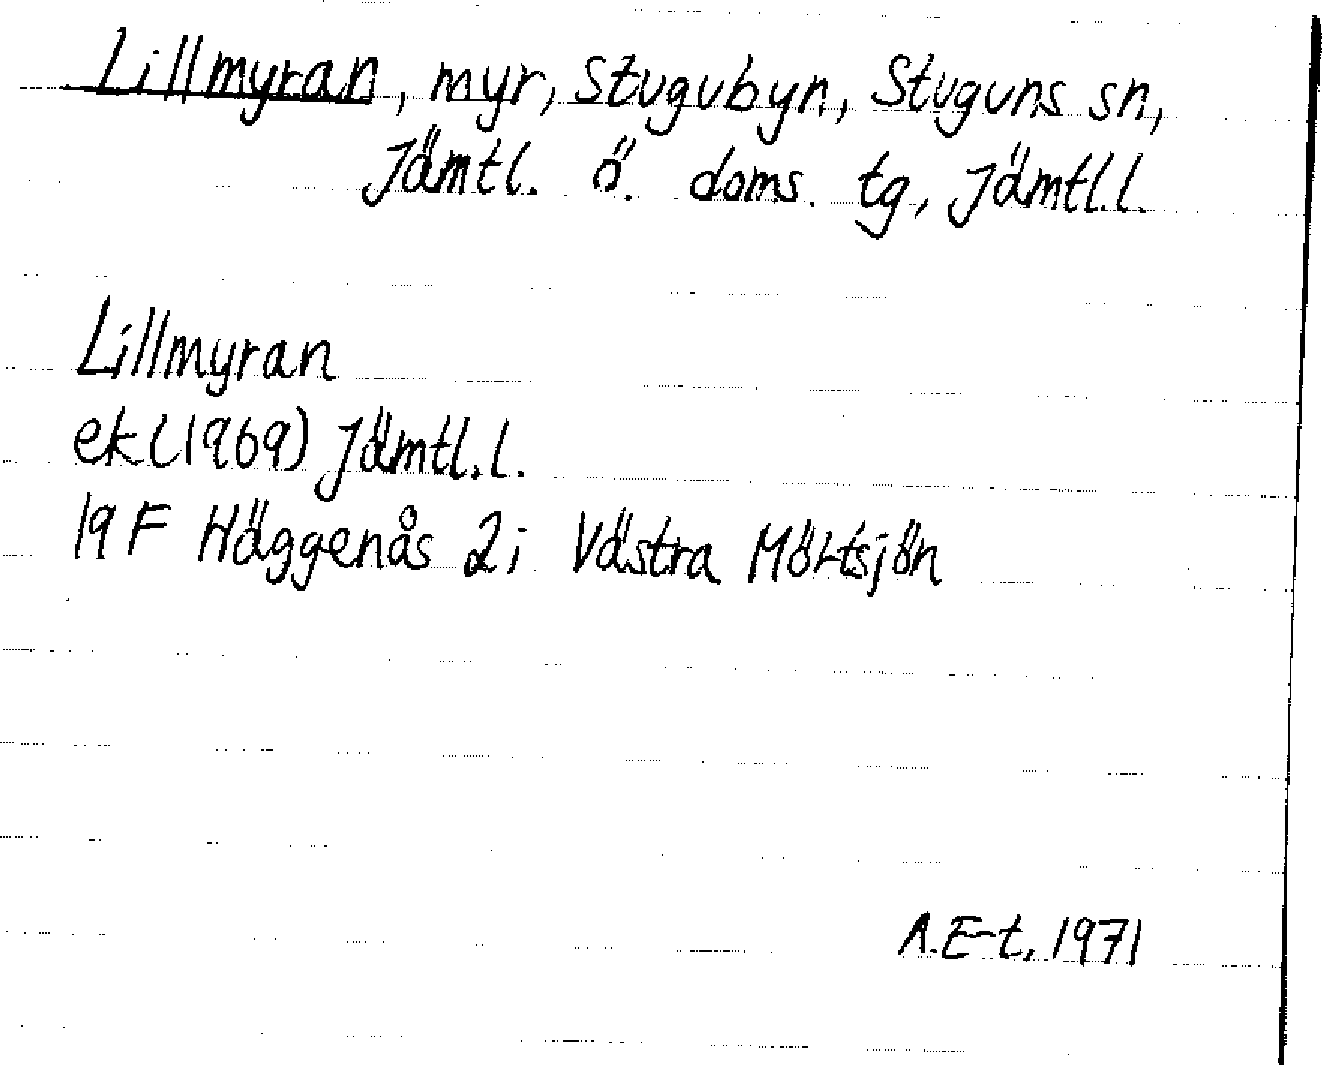 Lillmyran, myr, Stugubyn, Stuguns sn,
Jämtl. ö. doms. tg, Jämtl.l.
Lillmyran
ek(1969) Jämtl.l.
19F Häggenås 2i Västra Mörtsjön
A.E-t, 1971